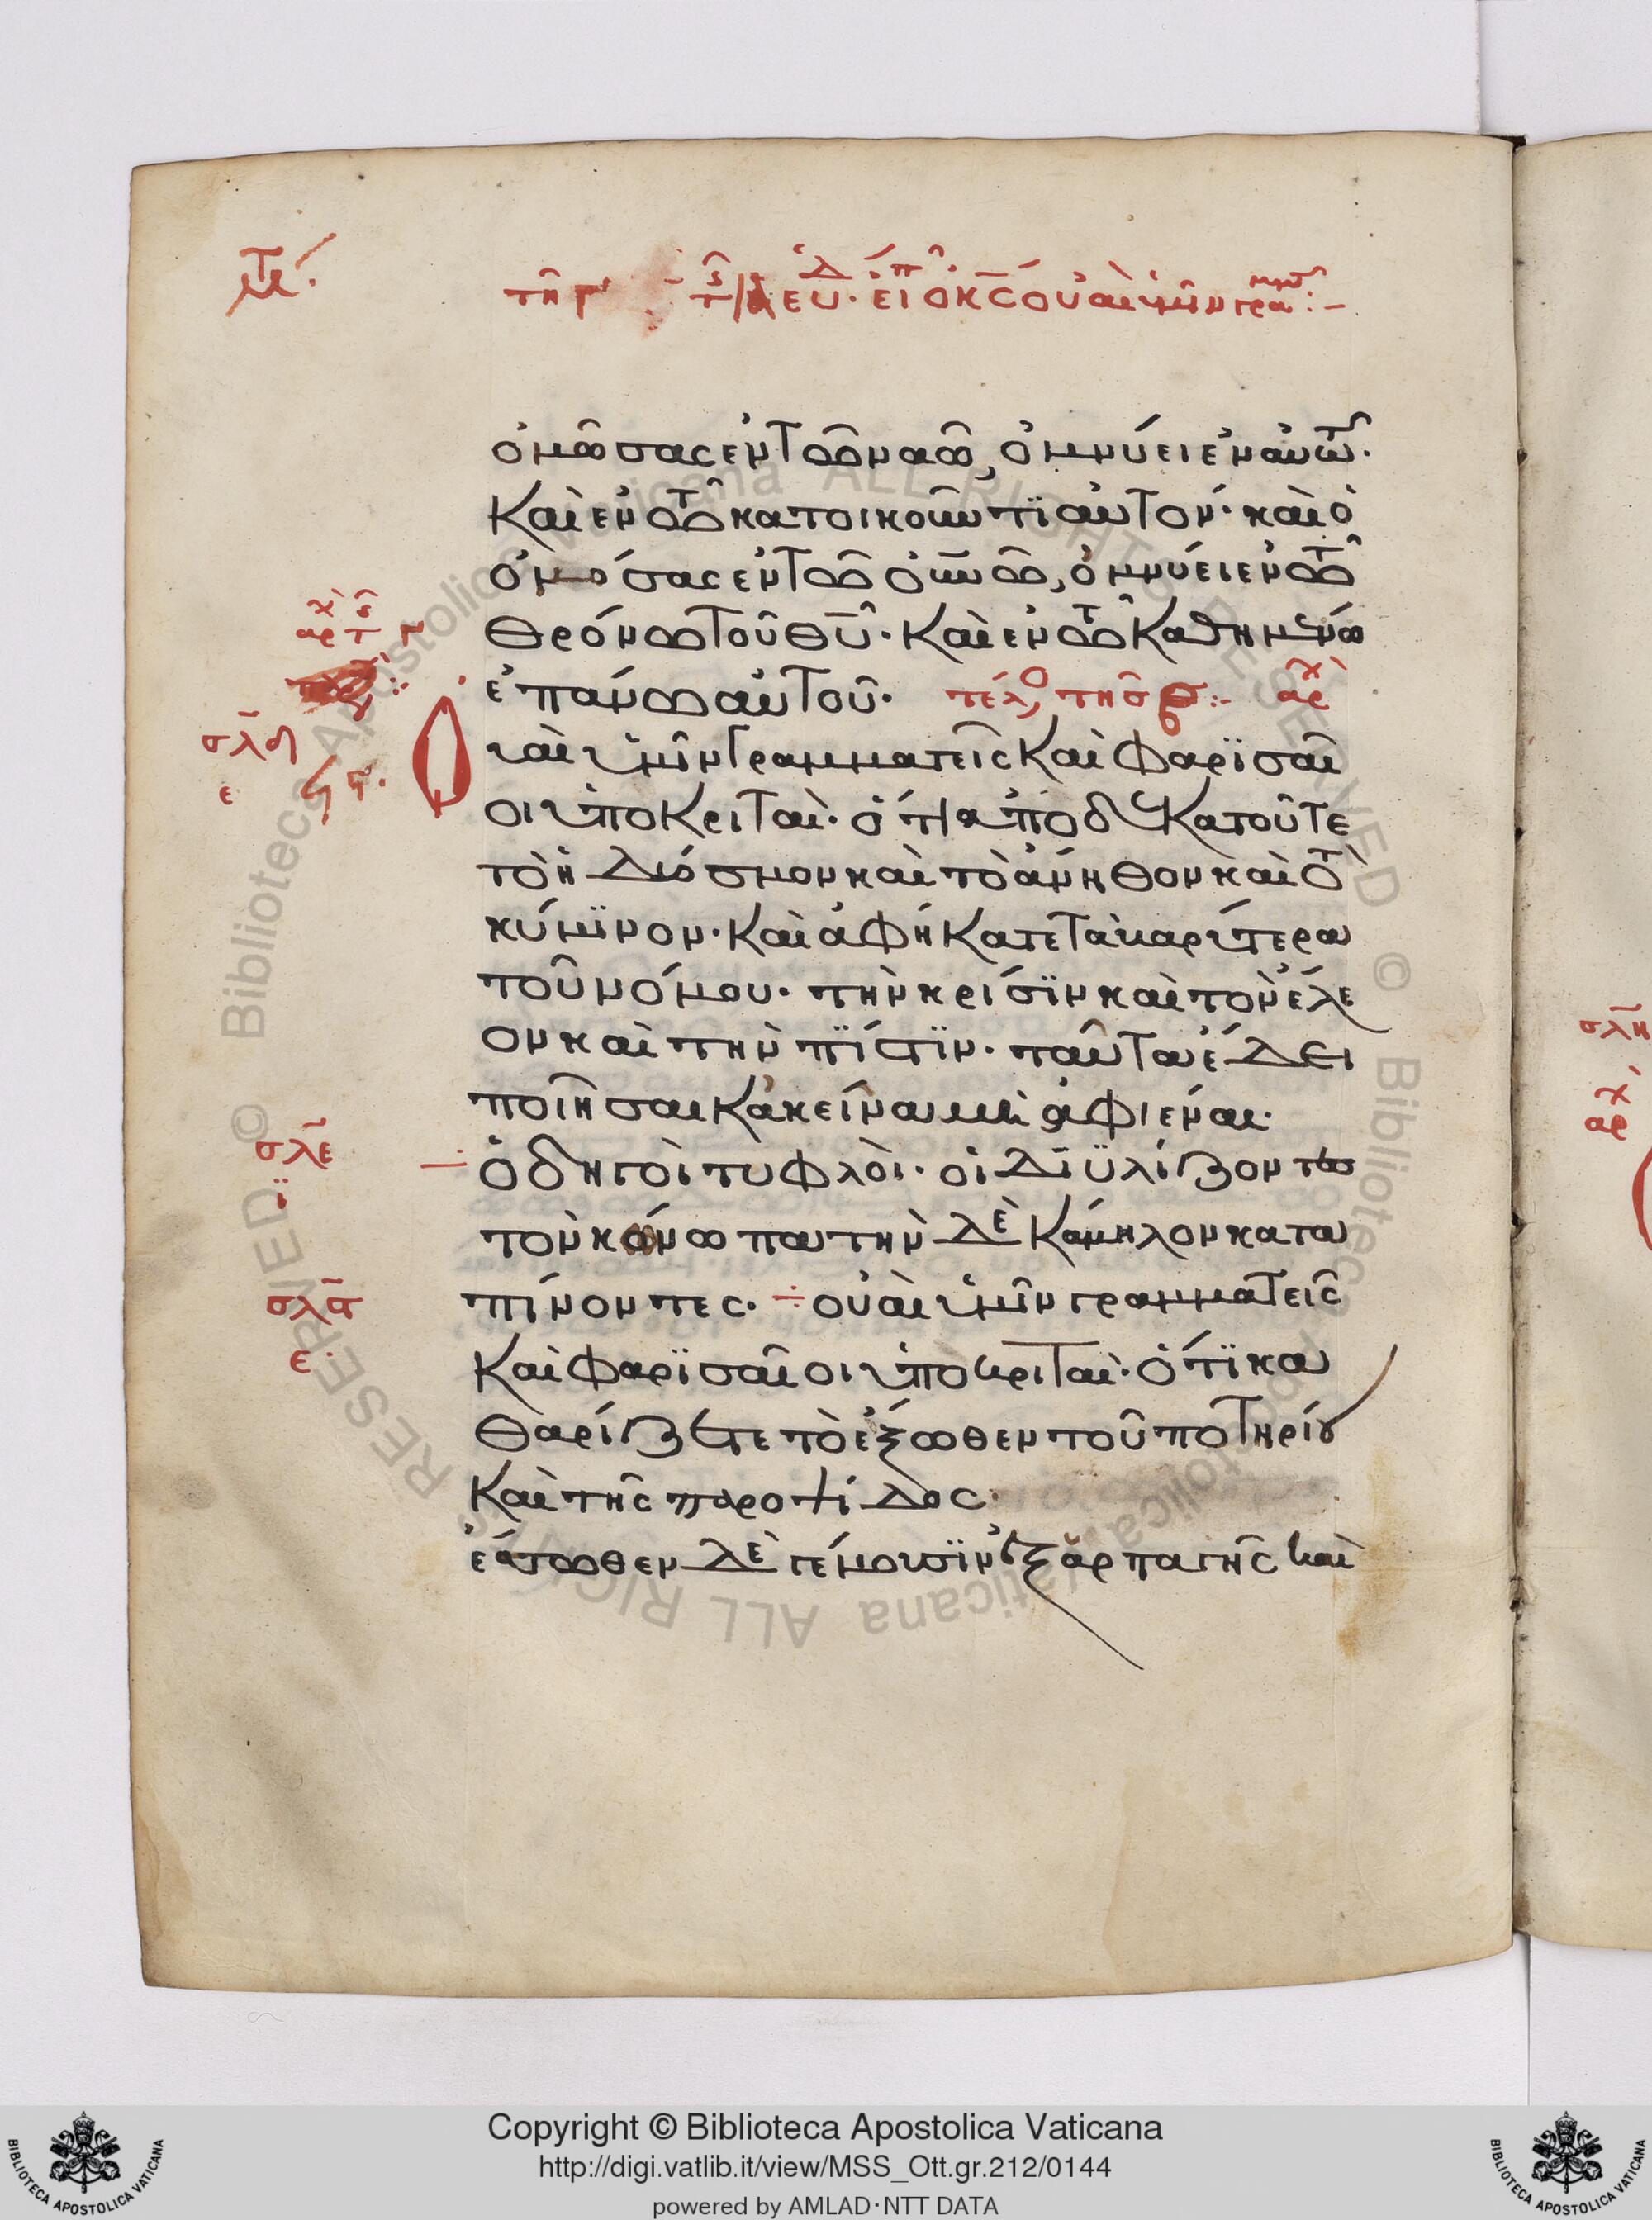 τῆ γ
εἶπ ὁ κ̅ς̅ οὐαὶ ὑμῖν γραμματ :-
ὀμῶσας ἐν τῶ ναῶ, ὀμνύει ἐν αὐτῶ.
Καὶ ἐν τῶ κατοικοῦντϊ αὐτόν· καὶ ὁ
ὀμόσας ἐν τῶ οὐνῶ, ὀμνύει ἐν τῶ
θρόνω τοῦ θ̅υ̅· Καὶ ἐν τῶ Καθημένω
ἐπάνω αὐτοῦ· τέλο τῆσ αρχ
αρχ
σλδ
ε
Οὐαὶ ὑμῖν Γραμματεῖς Καὶ Φαρϊσαῖ
οι ὑποΚριταὶ· ὅτι ἀποδεΚατοῦτε
τὸ ἡδιόσμον καὶ τὸ ἄνηθον καὶ τὸ
κύμϊνον· Καὶ ἀφήΚατε τὰ βαρύτερα
τοῦ νόμου· τὴν κρίσϊν καὶ τὸν ἔλε
ον καὶ τὴν πϊστϊν· ταῦτα ἔδει
ποιῆσαι Κἀκεῖνα μὴ ἀφιέναι·
σλε
ὁδηγοὶ τυφλοὶ· οἱ δϊϋλίζοντες
τὸν κώνωπα τὴν δὲ Κάμηλον κατα
σλσ
ε
πίνοντες· ÷ οὐαὶ ὑμῖν γραμματεῖς
Καὶ Φαρϊσαῖοι ὑποκριταὶ· ὅτϊ κα
θαρίζετε τὸ ἔξωθεν τοῦ ποτηρίου
Καὶ τῆς παροψίδος·
ἔσωθεν δὲ γέμουσϊν ἐξ ἁρπαγῆς καὶ
σλη
αρχ
Copyright © Biblioteca Apostolica Vaticana
http://digi.vatlib.it/view/MSS_Ott.gr.212/0144
powered by AMLAD·NTT DATA
BIBLIOTECA APOSTOLICA VATICANA
BIBLIOTECA APOSTOLICA VATICANA